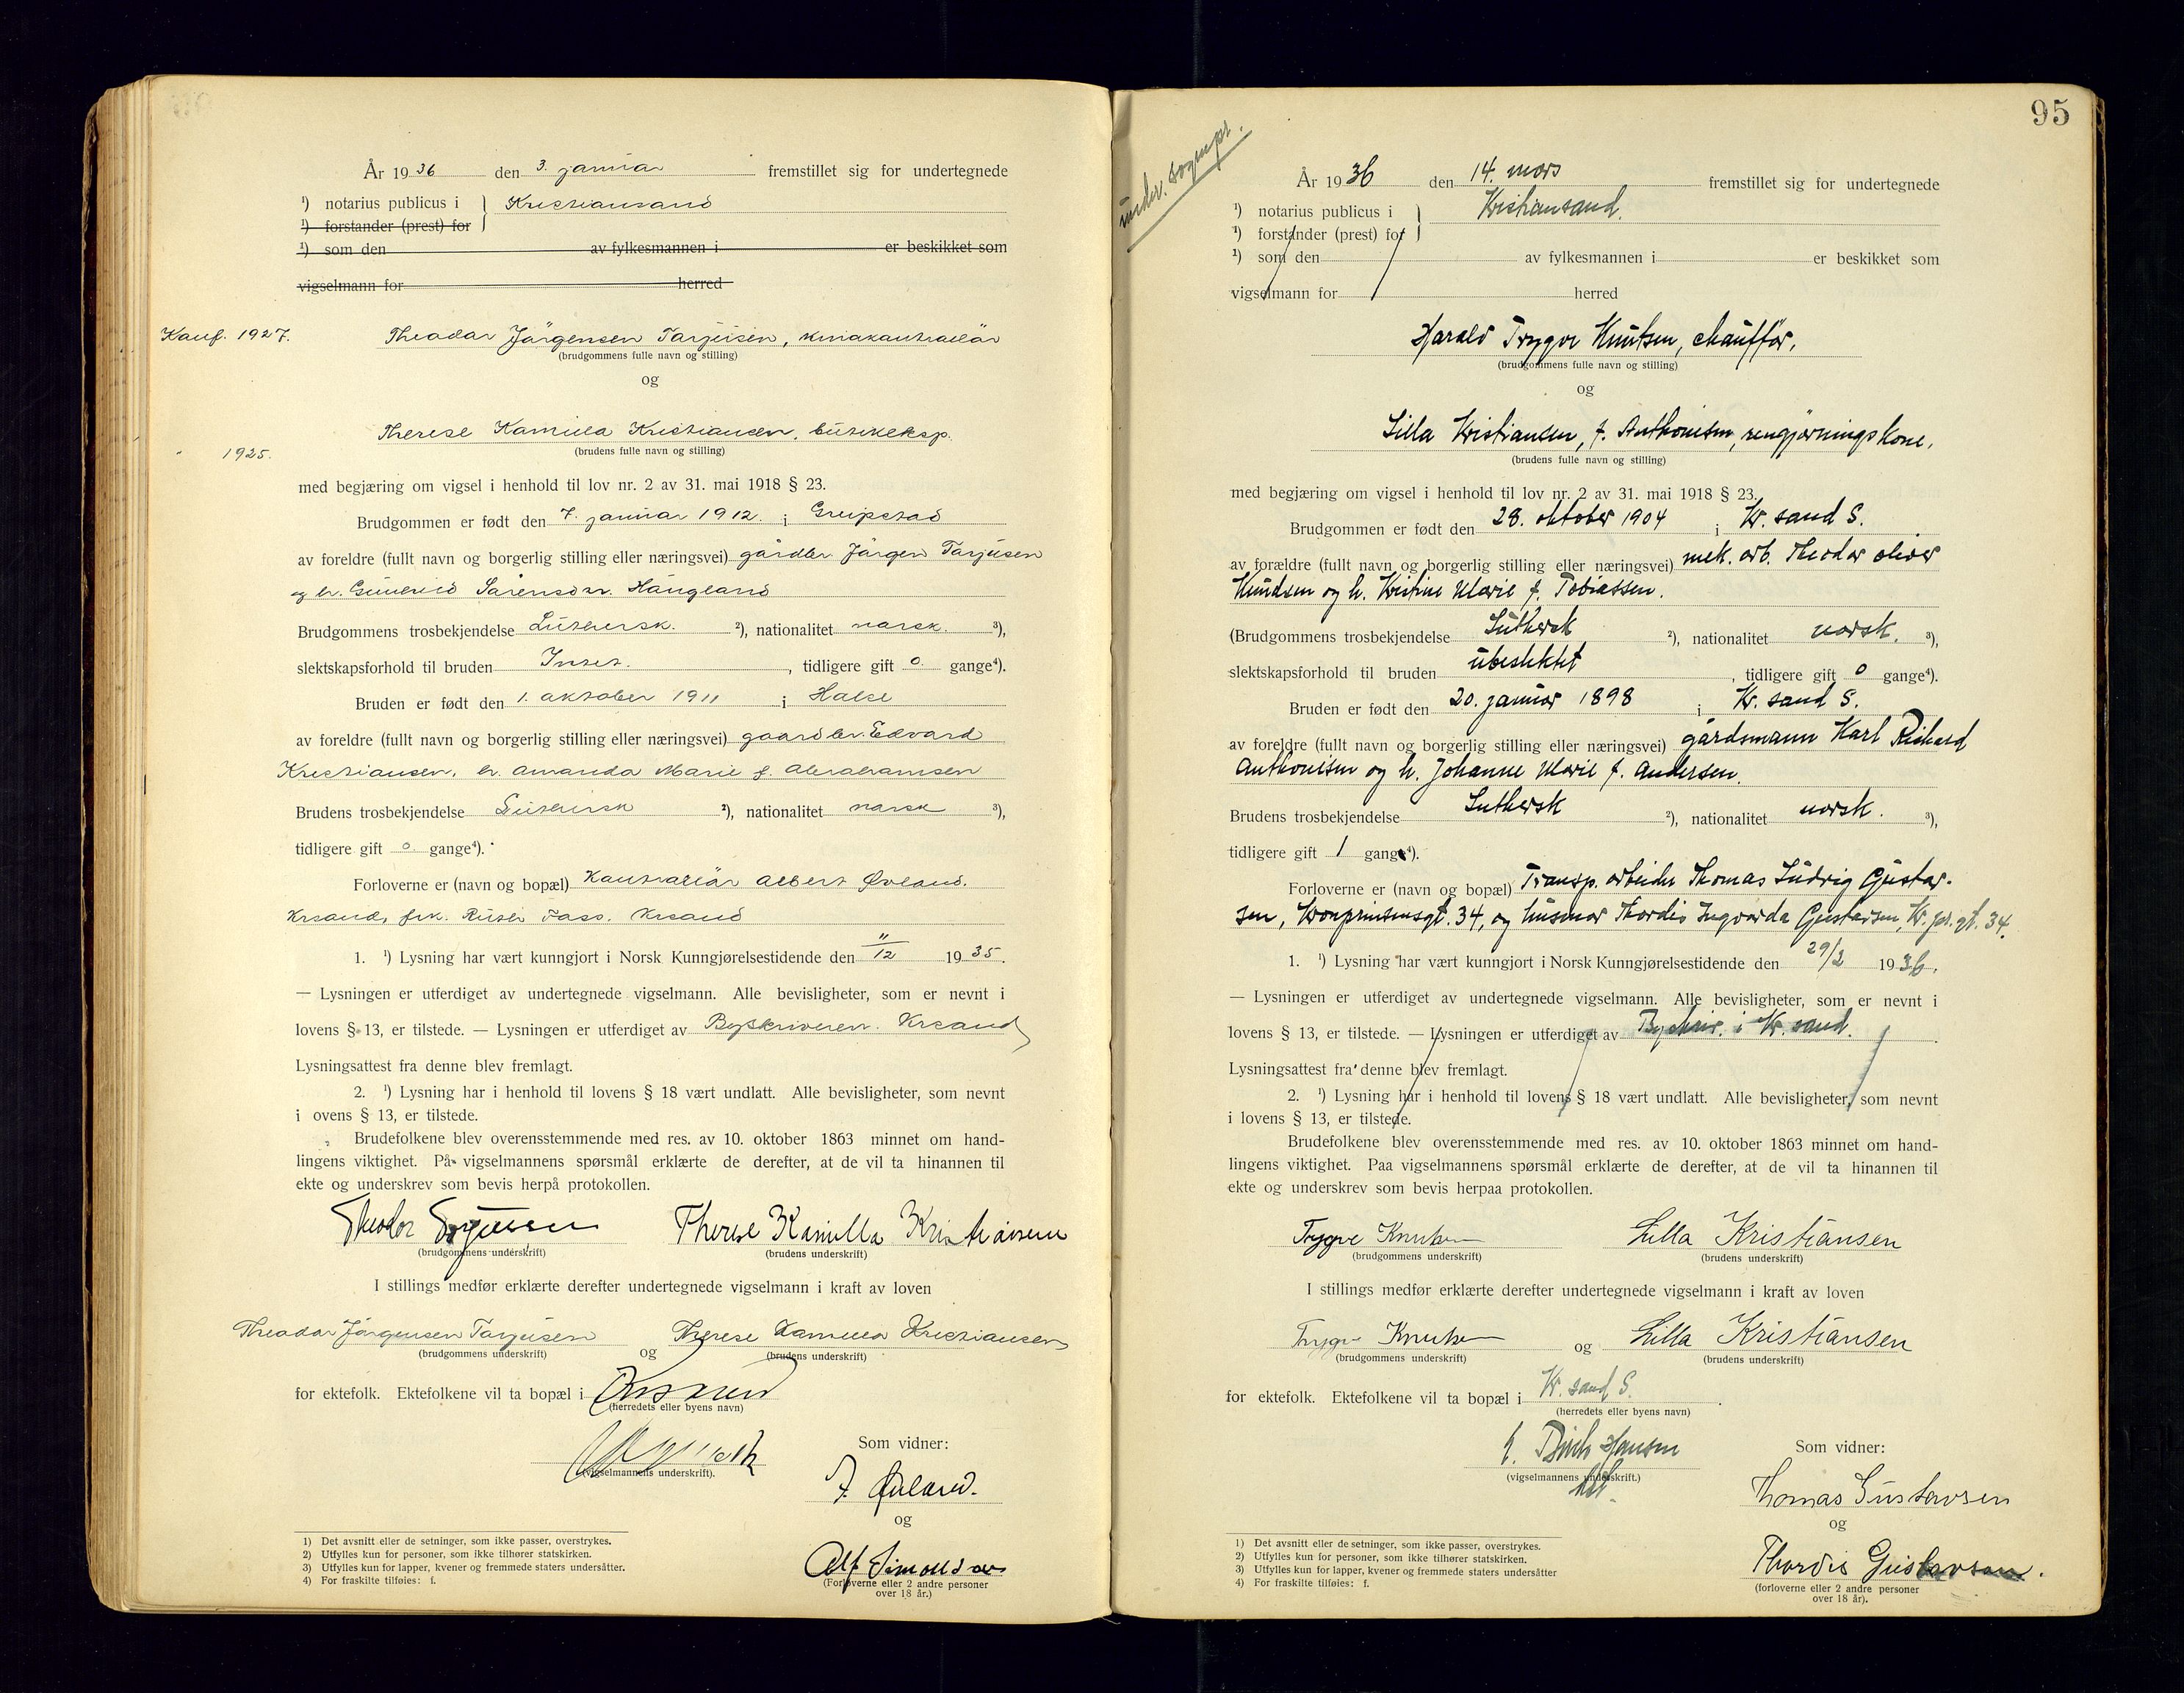 År 1936 den 3. januar fremstillet sig for undertegnede
¹) notarius publicus i } Kristiansand
¹) forstander (prest) for
¹) som den av fylkesmannen i er beskikket som
vigselmann for herred
Konf. 1927.
Theodor Jörgensen Tarjeisen, kinokontrollör
(brudgommens fulle navn og stilling)
og
Therese Kamilla Kristiansen, butikeksp.
" 1925.
(brudens fulle navn og stilling)
med begjæring om vigsel i henhold til lov nr. 2 av 31. mai 1918 § 23.
Brudgommen er født den 7. januar 1912. i Greipstad
av foreldre (fullt navn og borgerlig stilling eller næringsvei) gårdbr. Jörgen Tarjeisen
og h. Gunhild Sörensdtr. Haugland
Brudgommens trosbekjendelse Luthersk. ²), nationalitet norsk. ³),
slektskapsforhold til bruden Intet. , tidligere gift 0 gange⁴).
Bruden er født den 1. oktober 1911 i Halse
av foreldre (fullt navn og borgerlig stilling eller næringsvei) gaardbr. Edvard
Kristiansen, h. Amanda Marie f. Abrahamsen
Brudens trosbekjendelse Luthersk ²), nationalitet norsk ³),
tidligere gift 0 gange⁴).
Forloverne er (navn og bopæl) Kontrollör Albert Øvland.
Krsand, frk. Ruth Foss. Krsand
1. ¹) Lysning har vært kunngjort i Norsk Kunngjørelsestidende den 11/12 1935.
— Lysningen er utferdiget av undertegnede vigselmann. Alle bevisligheter, som er nevnt i
lovens § 13, er tilstede. — Lysningen er utferdiget av Byskriveren. Krsand
Lysningsattest fra denne blev fremlagt.
2. ¹) Lysning har i henhold til lovens § 18 vært undlatt. Alle bevisligheter, som nevnt
i ovens § 13, er tilstede.
Brudefolkene blev overensstemmende med res. av 10. oktober 1863 minnet om hand-
lingens viktighet. På vigselmannens spørsmål erklærte de derefter, at de vil ta hinannen til
ekte og underskrev som bevis herpå protokollen.
Theodor Torjussen Therese Kamilla Kristiansen
(brudgommens underskrift) (brudens underskrift)
I stillings medfør erklærte derefter undertegnede vigselmann i kraft av loven
Theodor Jörgensen Tarjeisen og Therese Kamilla Kristiansen
(brudgommens underskrift) (brudens underskrift)
for ektefolk. Ektefolkene vil ta bopæl i Krsand
(herredets eller byens navn)
(vigselmannens underskrift).
Som vidner:
Øvland.
og
Alf Simonsen
(Forloverne eller 2 andre personer
over 18 år.)
1) Det avsnitt eller de setninger, som ikke passer, overstrykes.
2) Utfylles kun for personer, som ikke tilhører statskirken.
3) Utfylles kun for lapper, kvener og fremmede staters undersåtter.
4) For fraskilte tilføies: f.
95
under. sognepr.
År 1936 den 14. mars fremstillet sig for undertegnede
¹) notarius publicus i } Kristiansand.
¹) forstander (prest) for
¹) som den av fylkesmannen i er beskikket som
vigselmann for herred
Harald Trygve Knutsen, chauffør.
(brudgommens fulle navn og stilling)
og
Lilla Kristiansen, f. Anthonisen, rengjørningskone.
(brudens fulle navn og stilling)
med begjæring om vigsel i henhold til lov nr. 2 av 31. mai 1918 § 23.
Brudgommen er født den 28. oktober 1904 i Kr. sand S.
av forældre (fullt navn og borgerlig stilling eller næringsvei) mek. arb. Theodor Oliver
Knudsen og h. Kristine Marie f. Tobiassen.
(Brudgommens trosbekjendelse Luthersk ²), nationalitet norsk. ³),
slektskapsforhold til bruden ubeslektet , tidligere gift 0 gange⁴).
Bruden er født den 20. januar 1898 i Kr. sand S.
av foreldre (fullt navn og borgerlig stilling eller næringsvei) gårdsmann Karl Richard
Anthonisen og h. Johanne Marie f. Andersen.
Brudens trosbekjendelse Luthersk ²), nationalitet norsk. ³),
tidligere gift 1 gang⁴).
Forloverne er (navn og bopæl) Transp. arbeider Thomas Ludvig Gustav-
sen, Kronprinsensgt. 34, og husmor Thordis Ingvarda Gustavsen, Kr. pr. gt. 34.
1. ¹) Lysning har vært kunngjort i Norsk Kunngjørelsestidende den 29/2 1936.
— Lysningen er utferdiget av undertegnede vigselmann. Alle bevisligheter, som er nevnt i
lovens § 13, er tilstede. — Lysningen er utferdiget av Byskriv. i Kr. sand.
Lysningsattest fra denne blev fremlagt.
2. ¹) Lysning har i henhold til lovens § 18 vært undlatt. Alle bevisligheter, som nevnt
i lovens § 13, er tilstede.
Brudefolkene blev overensstemmende med res. av 10. oktober 1863 minnet om hand-
lingens viktighet. Paa vigselmannens spørsmål erklærte de derefter, at de vil ta hinannen til
ekte og underskrev som bevis herpaa protokollen.
Trygve Knutsen Lilla Kristiansen
(brudgommens underskrift) (brudens underskrift)
I stillings medfør erklærte derefter undertegnede vigselmann i kraft av loven
Trygve Knutsen og Lilla Kristiansen
(brudgommens underskrift) (brudens underskrift)
for ektefolk. Ektefolkene vil ta bopæl i Kr. sand S.
(herredets eller byens navn)
Birch Hansen
(vigselmannens underskrift.)
Som vidner:
Thomas Gustavsen
og
Thordis Gustavsen.
(forloverne eller 2 andre personer
over 18 år).
1) Det avsnitt eller de setninger, som ikke passer, overstrykes.
2) Utfylles kun for personer, som ikke tilhører statskirken.
3) Utfylles kun for lapper, kvener og fremmede staters undersåtter
4) For fraskilte tilføies: f.